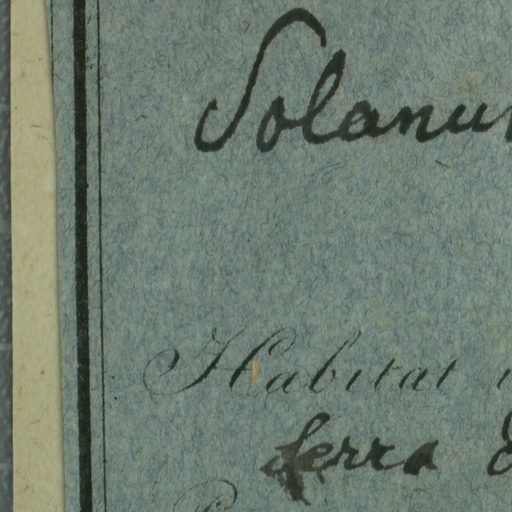 Solanu
Habitat
Serra